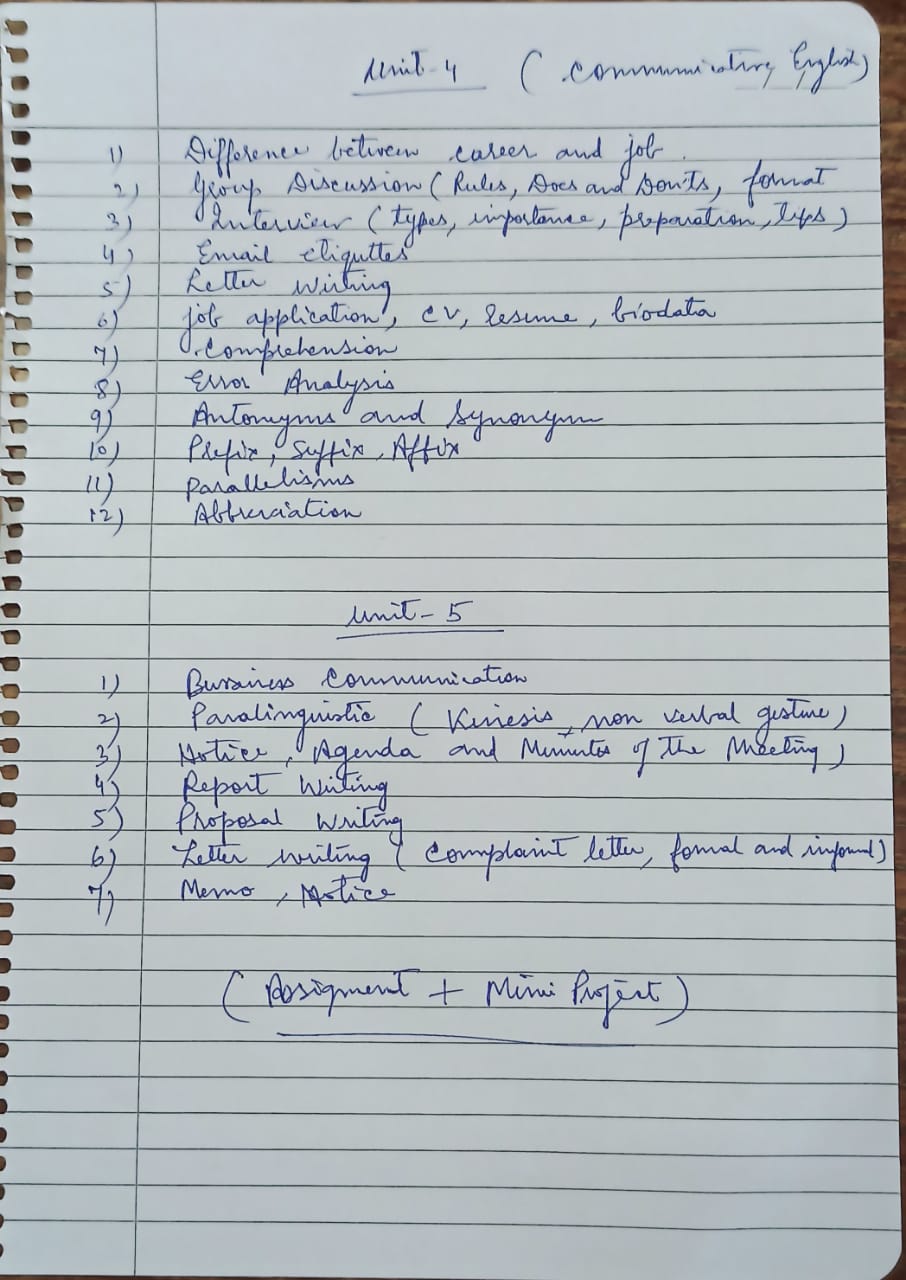 Unit-4 (Communicative English)
1) Difference between career and job.
2) Group Discussion (Rules, Does and Don'ts, format
3) Interview (types, importance, preparation, tips)
4) Email etiquttes
5) Letter writing
6) job application, CV, Resume, biodata
7) Comprehension
8) Error Analysis
9) Antonyms and Synonym
10) Prefix, Suffix, Affix
11) Parallelisms
12) Abbreviation
Unit-5
1) Bussiness Communication
2) Paralinguistic (Kinesis, non verbal gesture)
3) Notice, Agenda and Minutes of the Meeting)
4) Report Writing
5) Proposal Writing
6) Letter writing (complaint letter, formal and informal)
7) Memo, Notice
(Assigment + Mini Project)